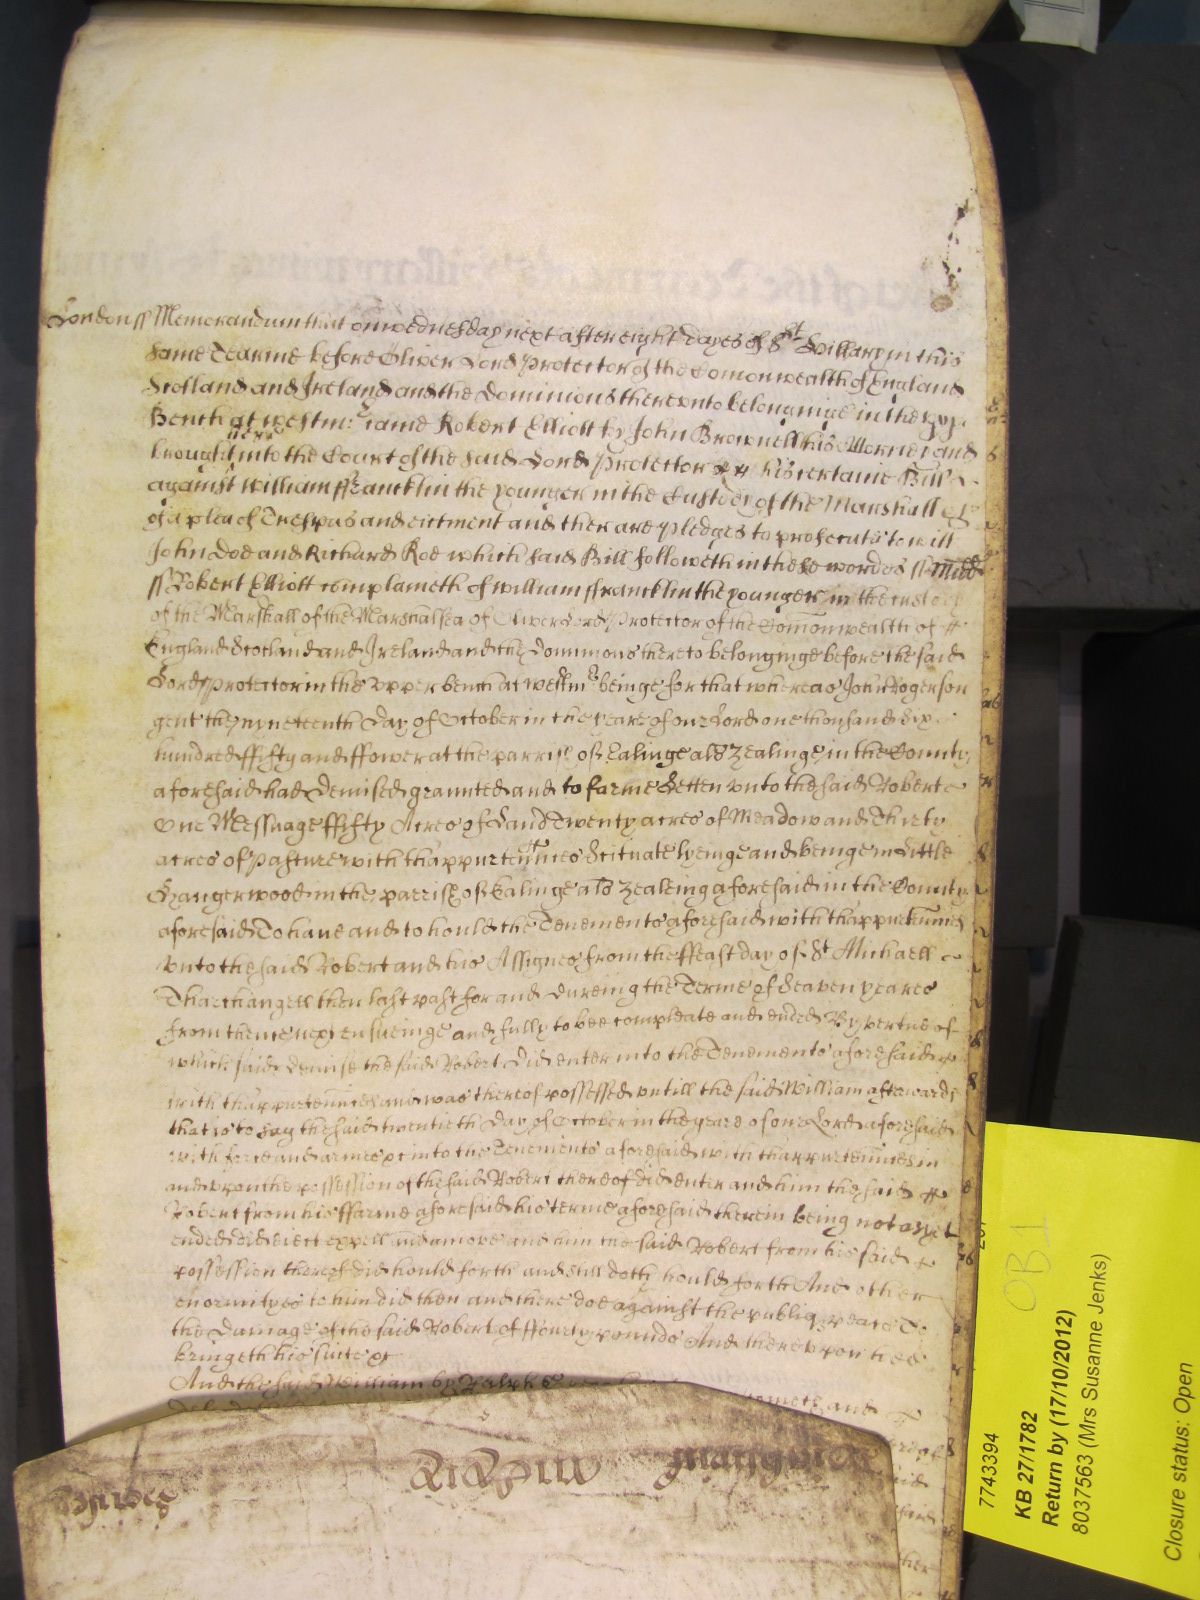 London ss Memorandum that on wednesday next after eight dayes of St Hillary in this
same Tearme before Oliver Lord Protector of the Comonwealth of England
Scotland and Ireland and the Dominions thereunto belonginge in the upp
Bench at westmr came Robert Elliott by John Brownell his Attorney and
brought here into the Court of the said Lord Protector his certaine Bill
against William ffrancklin the younger in the Custody of the Marshall &c
of a plea of Trespas and eiectment and ther are pledges to prosecute to witt
John Doe and Richard Roe which said Bill followeth in these wordes ss Midd
ss Robert Elliott complaineth of William ffrancklin the younger in the custody
of the Marshall of the Marshalsea of Oliver Lord Protector of the Common wealth of
England Scotland and Ireland and the Dominions thereto belonginge before the said
Lord Protector in the upper bench at westmr beinge for that whereas John Rogerson
gent the nyneteenth Day of October in the yeare of our Lord one thousand six
hundred ffifty and ffower at the parrish of Ealinge als Zealinge in the County
aforesaid had Demised graunted and to farme Letten unto the said Robert
one Messuage ffifty Acres of Land Twenty acres of Meadow and Thirty
acres of Pasture with thappurtennces Scituate lyeinge and beinge in Little
Hangerwood in the parrish of Ealinge als Zealeing aforesaid in the County
aforesaid To have and to hould the Tenements aforesaid with thappurtennces
unto the said Robert and his Assignes from the ffeast day of St Michaell
Tharchangell then last past for and dureing the Terme of Seaven yeares
from thence next ensueinge and fully to bee compleate and ended By vertue of
which said Demise the said Robert did enter into the Tenements aforesaid
with thappurtennces and was thereof possessed untill the said William afterwards
that is to say the said twentieth Day of October in the yeare of our Lord aforesaid
with force and armes &c into the Tenements aforesaid with thappurtennces in
and upon the possession of the said Robert thereof did enter and him the said
Robert from his ffarme aforesaid his terme aforesaid therein being not as yet
ended did eiect expell and amove and him the said Robert from his said
possession thereof did hould forth and still doth hould forth And other
enormityes to him did then and there doe against the publiq peace To
the Damage of the said Robert of ffourty pounds And thereupon hee
bringeth his suite &c
And the said William by Ralph cometh and
7743394
KB 27/1782
Return by (17/10/2012)
8037563 (Mrs Susanne Jenks)
Closure status: Open
OB1